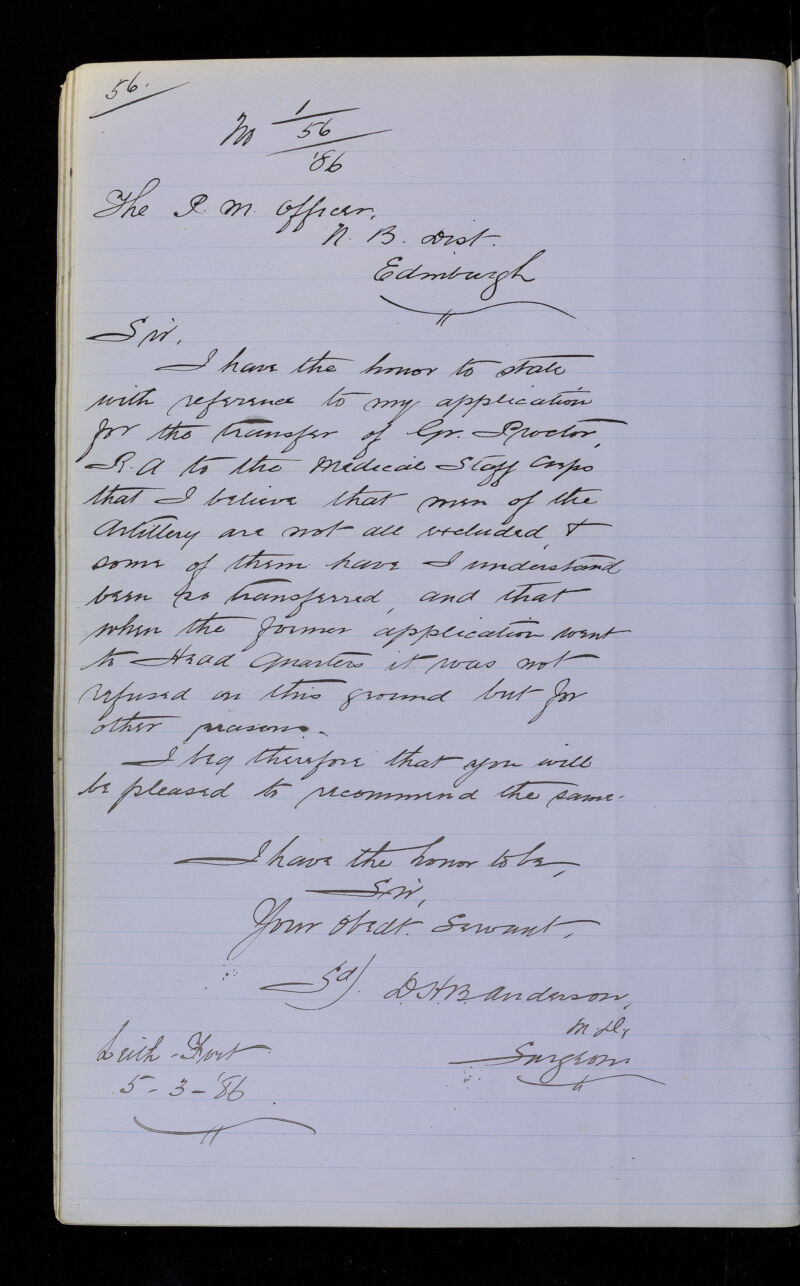 56.
No 1
56
'86
The P. M. Officer,
N. B. Dist.
Edinburgh
Sir,
I have the honor to state
with reference to my application
for the transfer of Gr. Proctor,
R.A to the Medical Staff Corps
that I believe that men of the
Artillery are not all excluded, &
some of them have I understand
been so transferred, and that
when the former application went
to Head Quarters it was not
refused on this ground but for
other reasons.
I beg therefore that you will
be pleased to recommend the same.
I have the honor to be,
Sir,
Your obedt. Servant,
Sd) D.H.B. Anderson,
M.D,
Leith-Fort
Surgeon
5-3-'86